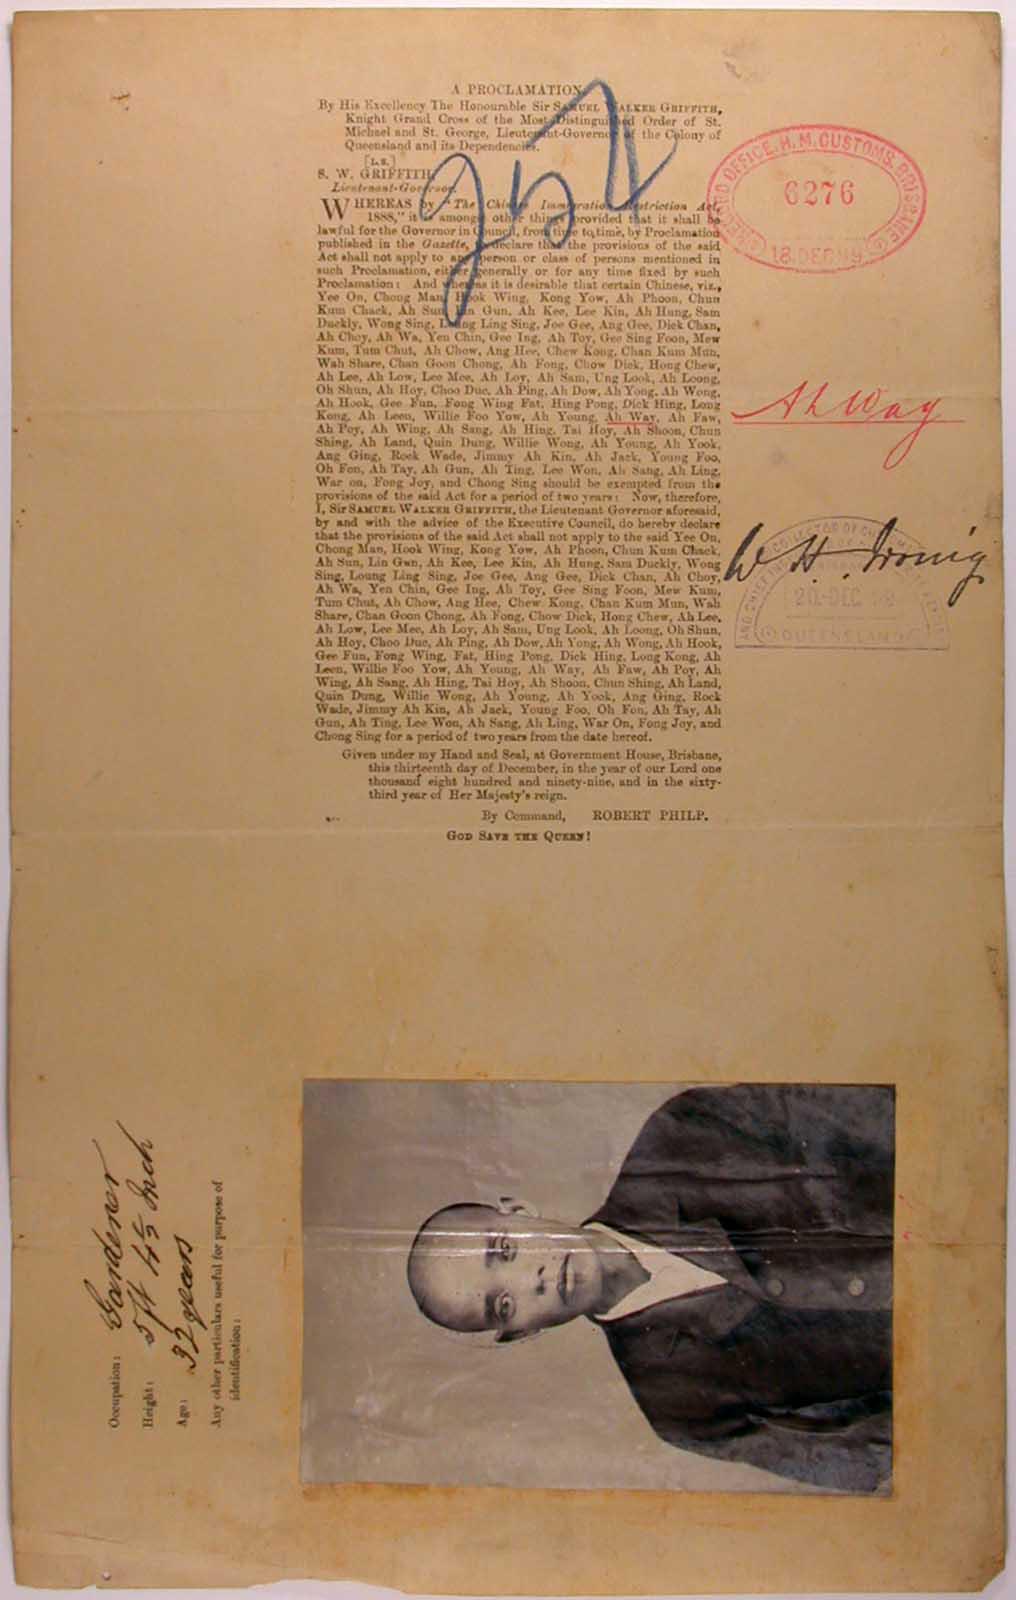 A PROCLAMATION
By His Excellency The Honourable Sir SAMUEL WALKER GRIFFITH,
Knight Grand Cross of the Most Distinguished Order of St.
Michael and St. George, Lieutenant-Governor of the Colony of
Queensland and its Dependencies.
[L.S.]
S. W. GRIFFITH,
Lieutenant-Governor.
WHEREAS by "The Chinese Immigration Restriction Act,
1888," it is amongst other things provided that it shall be
lawful for the Governor in Council, from time to time, by Proclamation
published in the Gazette, to declare that the provisions of the said
Act shall not apply to any person or class of persons mentioned in
such Proclamation, either generally or for any time fixed by such
Proclamation: And whereas it is desirable that certain Chinese, viz.,
Yee On, Chong Man, Hook Wing, Kong Yow, Ah Phoon, Chun
Kum Chack, Ah Sun, Lin Gun, Ah Kee, Lee Kin, Ah Hung, Sam
Duckly, Wong Sing, Loung Ling Sing, Joe Gee, Ang Gee, Dick Chan,
Ah Choy, Ah Wa, Yen Chin, Gee Ing, Ah Toy, Gee Sing Foon, Mew
Kum, Tum Chut, Ah Chow, Ang Hee, Chew Kong, Chan Kum Mun,
Wah Share, Chan Goon Chong, Ah Fong, Chow Dick, Hong Chew,
Ah Lee, Ah Low, Lee Mee, Ah Loy, Ah Sam, Ung Look, Ah Loong,
Oh Shun, Ah Hoy, Choo Duc, Ah Ping, Ah Dow, Ah Yong, Ah Wong,
Ah Hook, Gee Fun, Fong Wing Fat, Hing Pong, Dick Hing, Long
Kong, Ah Leen, Willie Foo Yow, Ah Young, Ah Way, Ah Faw,
Ah Poy, Ah Wing, Ah Sang, Ah Hing, Tai Hoy, Ah Shoon, Chun
Shing, Ah Land, Quin Dung, Willie Wong, Ah Young, Ah Yook,
Ang Ging, Rock Wade, Jimmy Ah Kin, Ah Jack, Young Foo,
Oh Fon, Ah Tay, Ah Gun, Ah Ting, Lee Won, Ah Sang, Ah Ling,
War on, Fong Joy, and Chong Sing should be exempted from the
provisions of the said Act for a period of two years: Now, therefore,
I, Sir SAMUEL WALKER GRIFFITH, the Lieutenant Governor aforesaid,
by and with the advice of the Executive Council, do hereby declare
that the provisions of the said Act shall not apply to the said Yee On,
Chong Man, Hook Wing, Kong Yow, Ah Phoon, Chun Kum Chack,
Ah Sun, Lin Gun, Ah Kee, Lee Kin, Ah Hung, Sam Duckly, Wong
Sing, Loung Ling Sing, Joe Gee, Ang Gee, Dick Chan, Ah Choy,
Ah Wa, Yen Chin, Gee Ing, Ah Toy, Gee Sing Foon, Mew Kum,
Tum Chut, Ah Chow, Ang Hee, Chew Kong, Chan Kum Mun, Wah
Share, Chan Goon Chong, Ah Fong, Chow Dick, Hong Chew, Ah Lee,
Ah Low, Lee Mee, Ah Loy, Ah Sam, Ung Look, Ah Loong, Oh Shun,
Ah Hoy, Choo Duc, Ah Ping, Ah Dow, Ah Yong, Ah Wong, Ah Hook,
Gee Fun, Fong Wing, Fat, Hing Pong, Dick Hing, Long Kong, Ah
Leen, Willie Foo Yow, Ah Young, Ah Way, Ah Faw, Ah Poy, Ah
Wing, Ah Sang, Ah Hing, Tai Hoy, Ah Shoon, Chun Shing, Ah Land,
Quin Dung, Willie Wong, Ah Young, Ah Yook, Ang Ging, Rock
Wade, Jimmy Ah Kin, Ah Jack, Young Foo, Oh Fon, Ah Tay, Ah
Gun, Ah Ting, Lee Won, Ah Sang, Ah Ling, War On, Fong Joy, and
Chong Sing for a period of two years from the date hereof.
Given under my Hand and Seal, at Government House, Brisbane,
this thirteenth day of December, in the year of our Lord one
thousand eight hundred and ninety-nine, and in the sixty-
third year of Her Majesty's reign.
By Command, ROBERT PHILP.
GOD SAVE THE QUEEN!
RECORD OFFICE, H.M. CUSTOMS, BRISBANE
6276
18.DEC.99
Ah Way
W. H. Irving
20.DEC 99
QUEENSLAND
Occupation: Gardener
Height: 5ft 4½ Inch
Age: 32 years
Any other particulars useful for purpose of
identification: